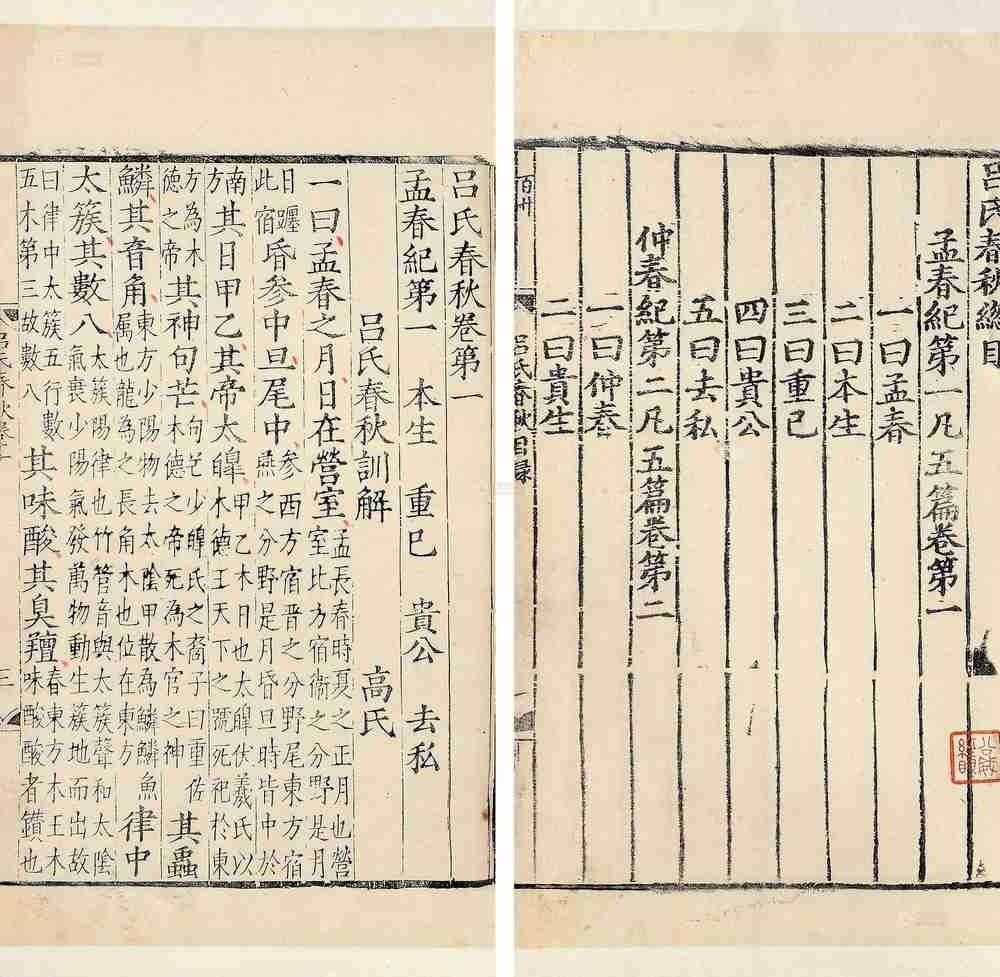 呂氏春秋緫目
孟春紀第一凡五篇卷第一
一曰孟春
二曰本生
三曰重己
四曰貴公
五曰去私
仲春紀第二凡五篇卷第二
一曰仲春
二曰貴生
百卅 呂氏春秋目録
呂氏春秋卷第一
孟春紀第一 本生 重巳 貴公 去私
呂氏春秋訓解 高氏
一曰孟春之月日在營室孟長春時夏之正月也營室北方宿衞之分野是月
日躔此宿昏參中旦尾中參西方宿晋之分野尾東方宿燕之分野是月昏旦時皆中於
南方其日甲乙其帝太皥甲乙木日也太皥伏羲氏以木德王天下之號死祀於東
方為木德之帝其神句芒句芒少皥氏之裔子曰重佐木德之帝死為木官之神其蟲
鱗其音角東方少陽物去太陰甲散為鱗鱗魚属也龍為之長角木也位在東方律中
太簇其數八太簇陽律也竹管音與太簇聲和太陰氣衰少陽氣發萬物動生簇地而出故
曰律中太簇五行數五木第三故數八其味酸其臭羶春東方木王木味酸酸者鑽也
呂氏春秋卷一 三